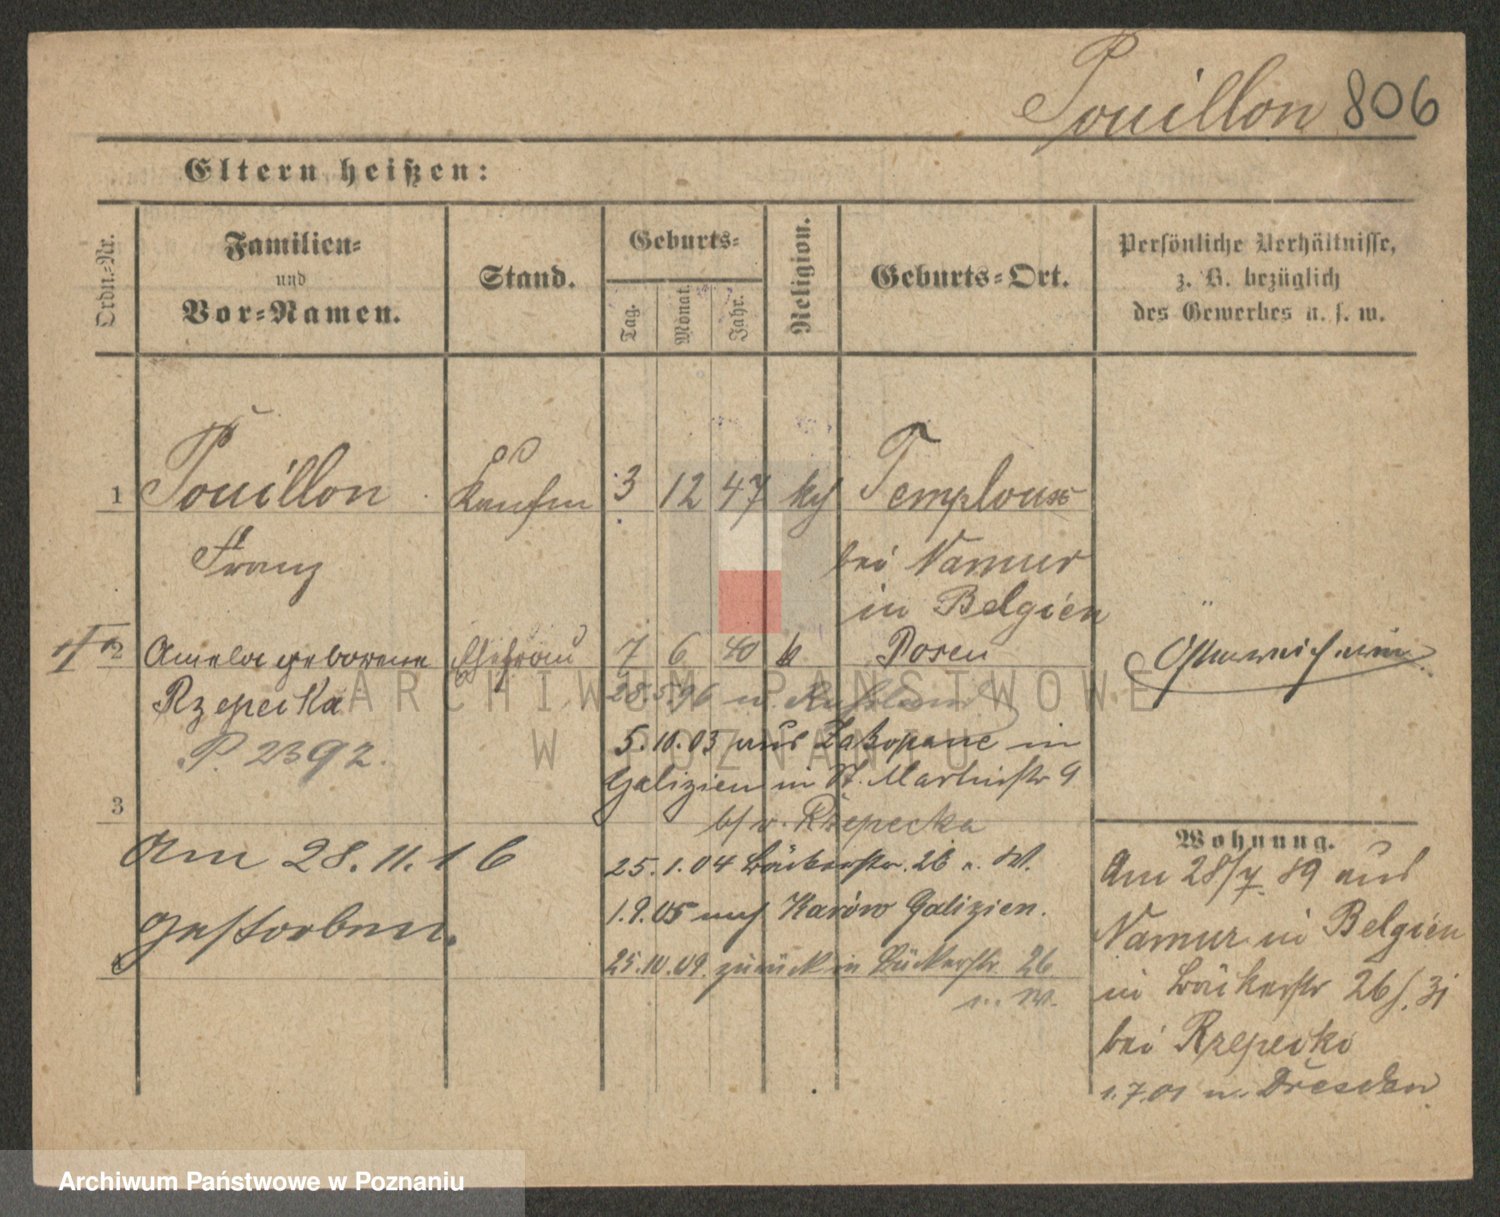 Pouillon 806
Eltern heißen:
Ordn.-Nr.
Familien-
und
Vor-Namen.
Stand.
Geburts-
Tag.
Monat.
Jahr.
Religion.
Geburts-Ort.
Persönliche Verhältnisse,
z. B. bezüglich
des Gewerbes u. s. w.
1 Pouillon Kaufm 3 12 47 kh Temploux
Franz bei Namur
in Belgien
2 Amela geborene Ehefrau 7 6 40 k Posen
Rzepecka 28.5.96 n. Rußland
P. 2392. 5.10.03 aus Zakopane in
Galizien in St. Martinstr 9
3 b/ v. Rzepecka
Am 28.11.16 25.1.04 Bäckerstr. 26
gestorben. 1.9.05 nach Galizien.
25.10.09. zurück in Bäckerstr 26
Wohnung.
Am 28/7. 89 aus
Namur in Belgien
in Bäckerstr 26
bei Rzepecki
1.7.01 n. Dresden
ARCHIWUM PAŃSTWOWE
W POZNANIU
Archiwum Państwowe w Poznaniu